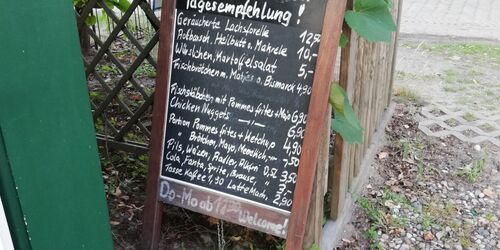 Tagesempfehlung!
Geräucherte Lachsforelle 12,50
Rotbarsch, Heilbutt o. Makrele 10,-
Würstchen, Kartoffelsalat 5,-
Fischbrötchen m. Matjes o. Bismarck 4,90
Fischstäbchen mit Pommes frites + Majo 6,90
Chicken Nuggets 6,90
Portion Pommes frites + Ketchup 4,90
" Brötchen, Mayo, -,50
Pils, Weizen, Radler, 0,5l 3,50
Cola, Fanta, Sprite, Brause, 3,-
Tasse Kaffee 1,90 Latte 2,90
Do-Mo ab Welcome!